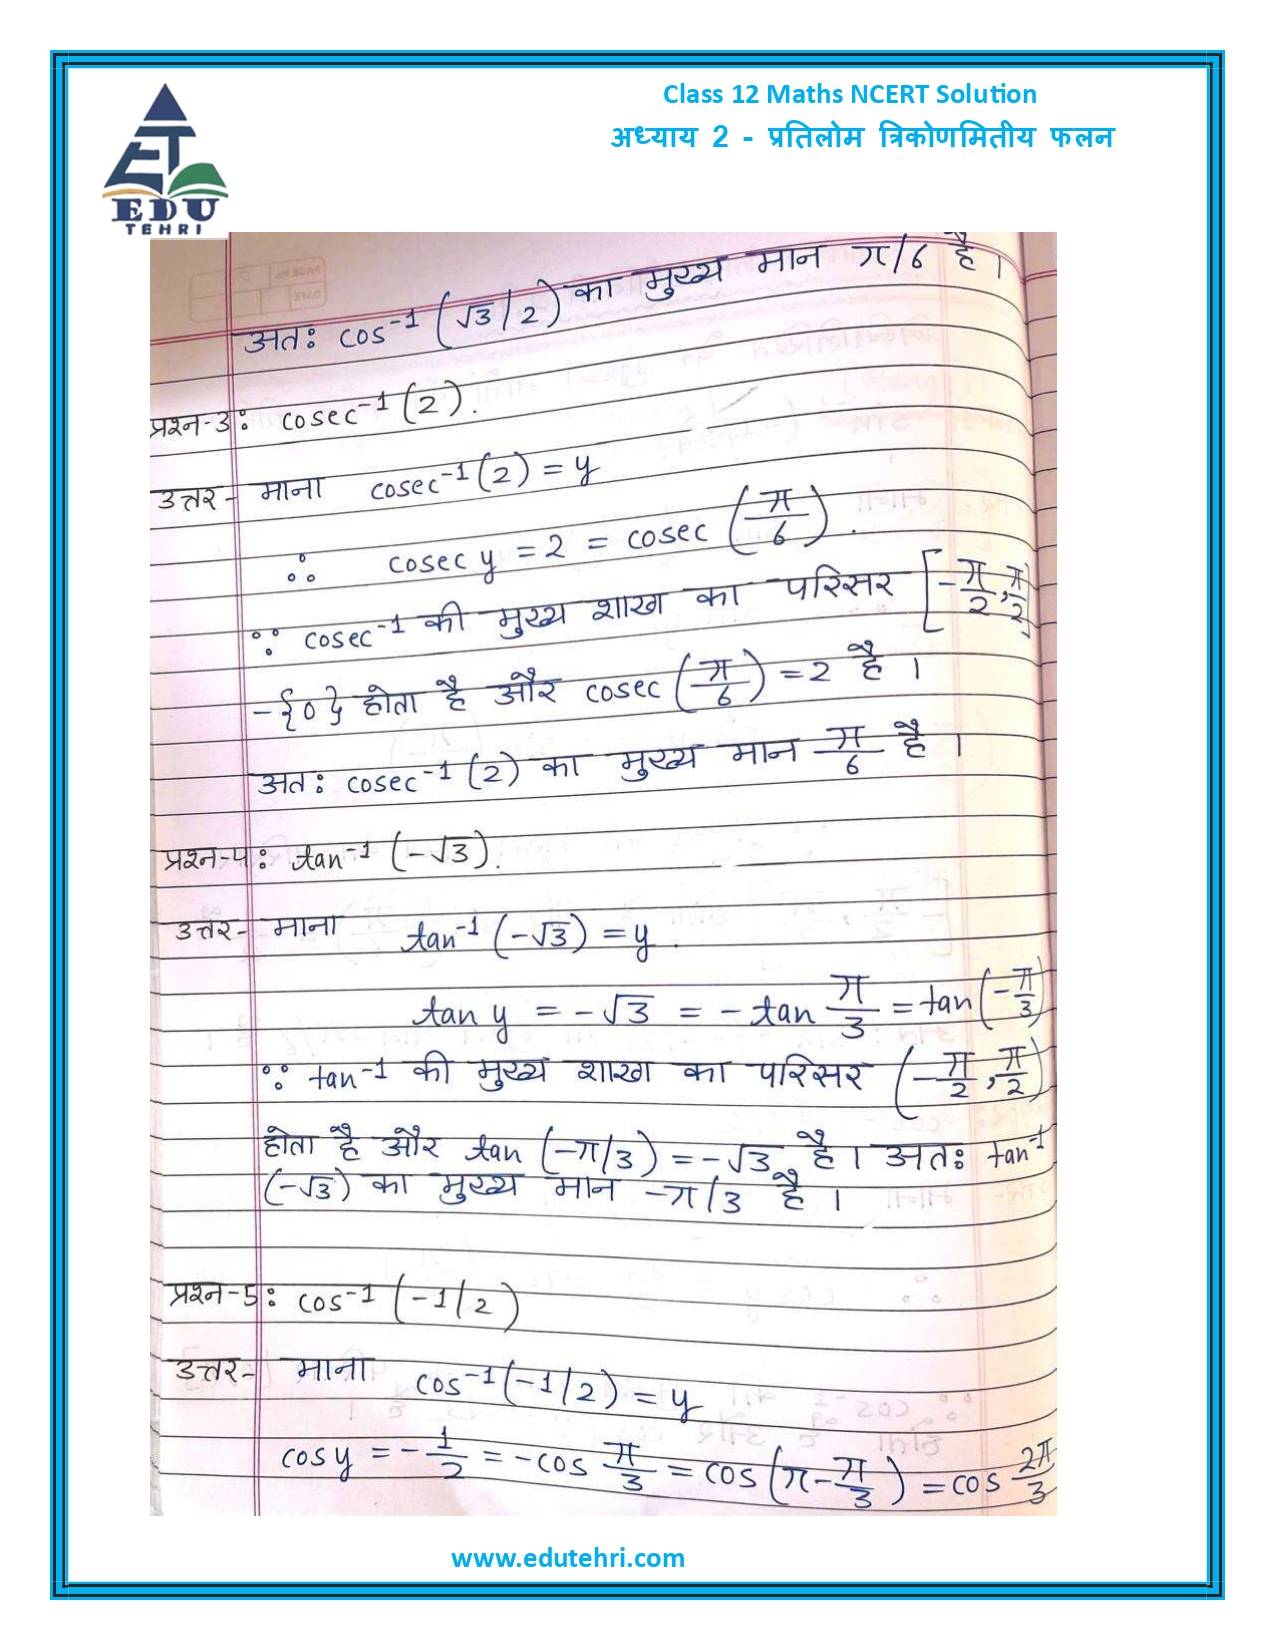 Class 12 Maths NCERT Solution
अध्याय 2 - प्रतिलोम त्रिकोणमितीय फलन
ET
EDU
TEHRI
अतः cos⁻¹ (√3/2) का मुख्य मान π/6 है।
प्रश्न-3: cosec⁻¹(2).
उत्तर- माना cosec⁻¹(2) = y
∴ cosec y = 2 = cosec (π/6).
∵ cosec⁻¹ की मुख्य शाख का परिसर [-π/2, π/2]
-{0} होता है और cosec (π/6) = 2 है।
अतः cosec⁻¹(2) का मुख्य मान π/6 है।
प्रश्न-4: tan⁻¹ (-√3).
उत्तर- माना tan⁻¹ (-√3) = y.
tan y = -√3 = -tan π/3 = tan (-π/3)
∵ tan⁻¹ की मुख्य शाख का परिसर (-π/2, π/2)
होता है और tan (-π/3) = -√3 है। अतः tan⁻¹
(-√3) का मुख्य मान -π/3 है।
प्रश्न-5: cos⁻¹ (-1/2)
उत्तर- माना cos⁻¹(-1/2) = y
cos y = -1/2 = -cos π/3 = cos (π - π/3) = cos 2π/3
www.edutehri.com